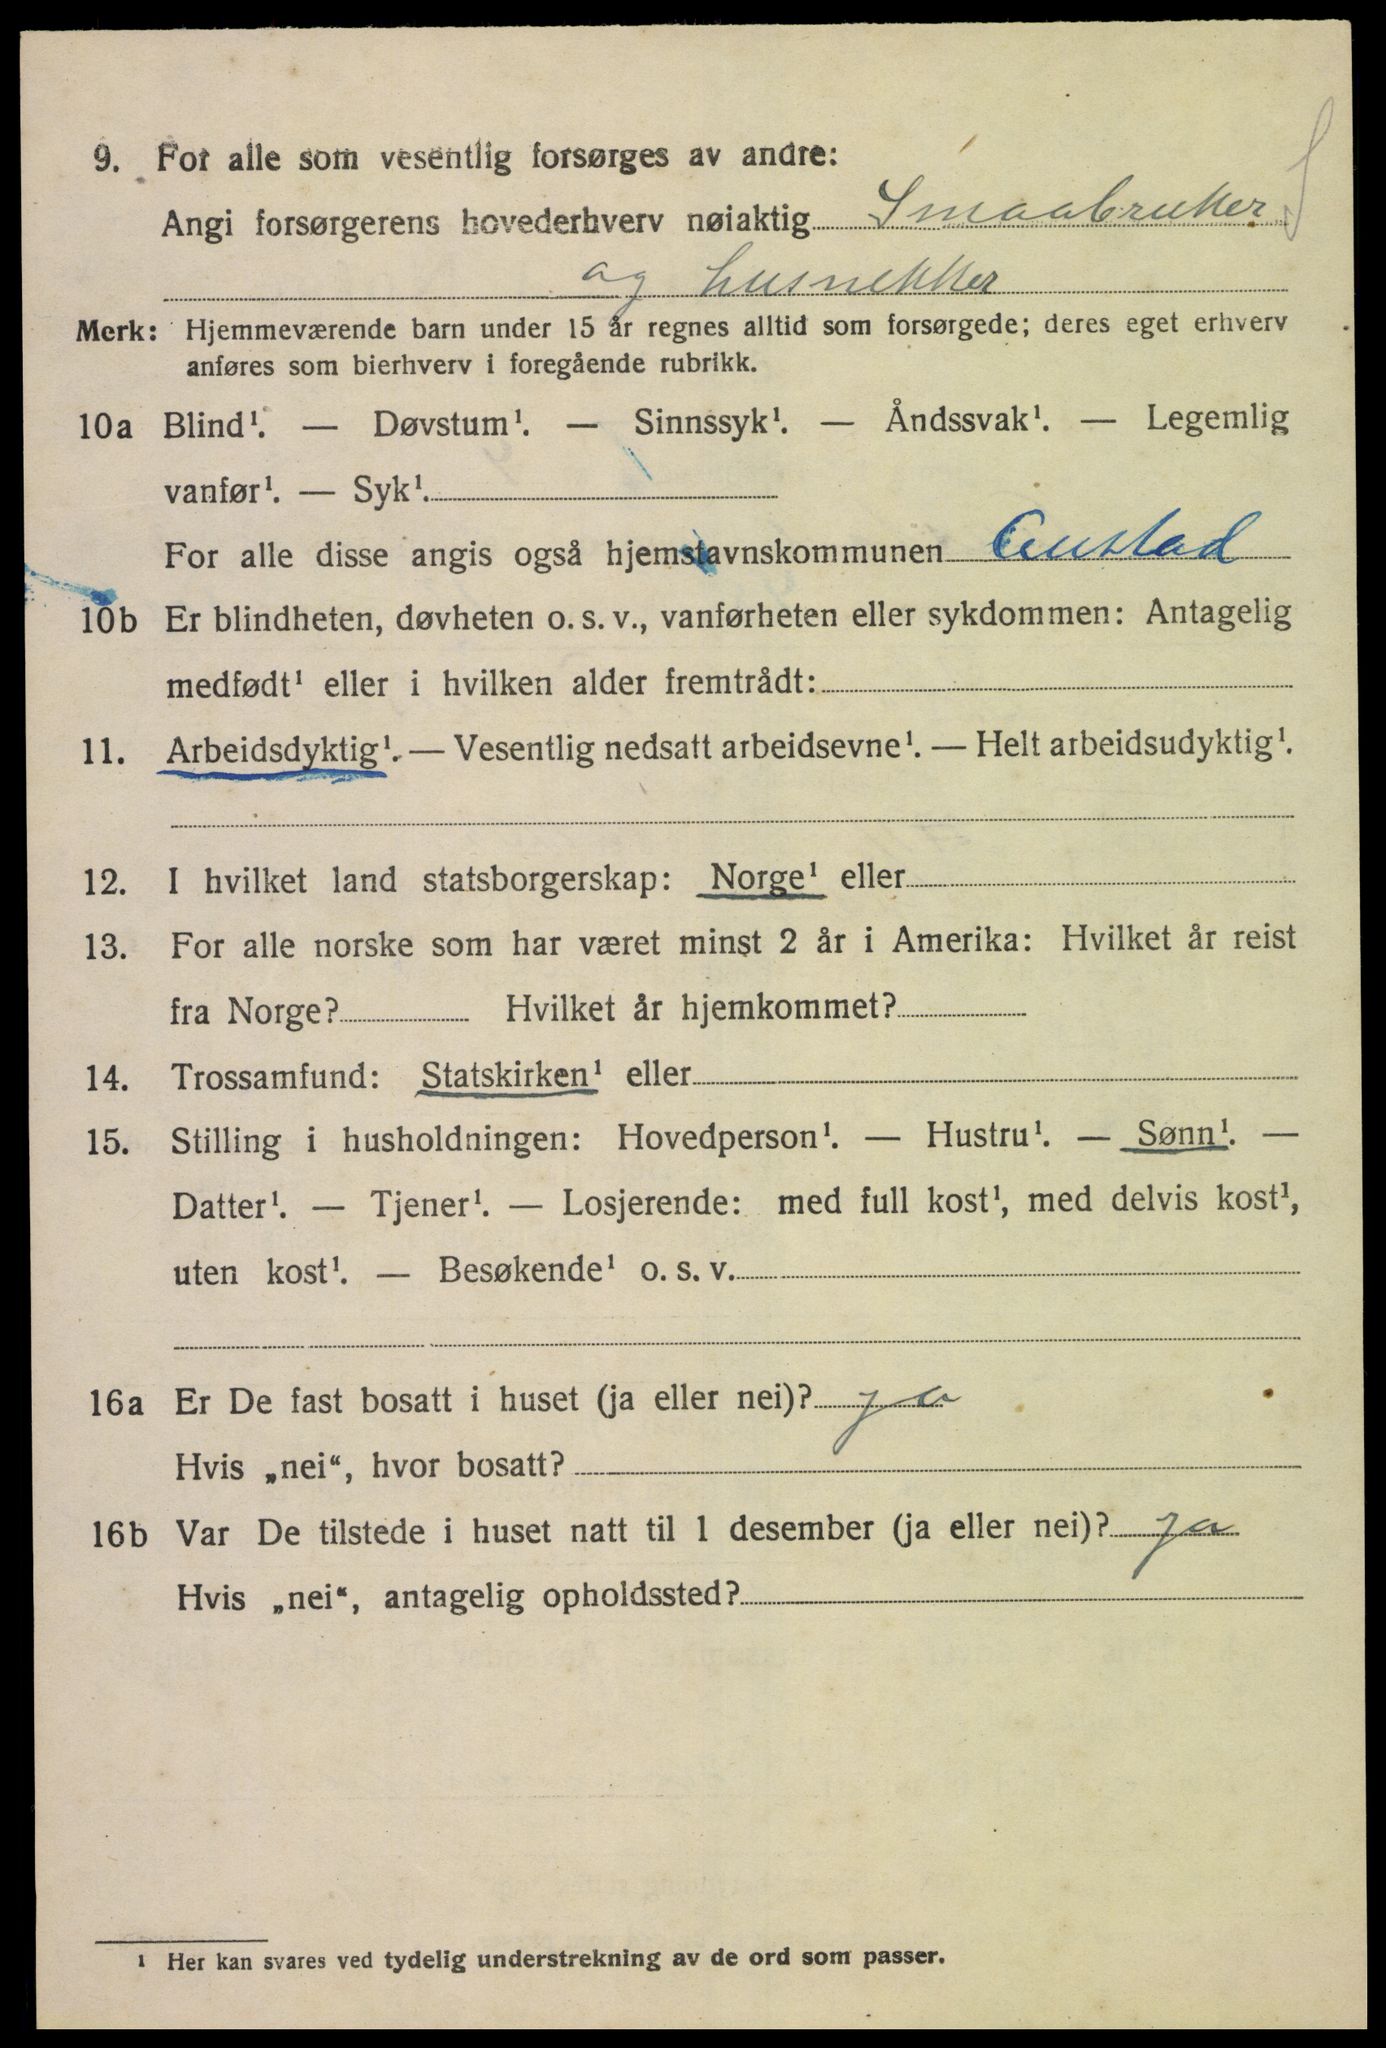 9. For alle som vesentlig forsørges av andre:
Angi forsørgerens hovederhverv nøiaktig Smaabruker
og husnekker
Merk: Hjemmeværende barn under 15 år regnes alltid som forsørgede; deres eget erhverv
anføres som bierhverv i foregående rubrikk.
10a Blind¹. — Døvstum¹. — Sinnssyk¹. — Åndssvak¹. — Legemlig
vanfør¹. — Syk¹.
For alle disse angis også hjemstavnskommunen
10b Er blindheten, døvheten o. s. v., vanførheten eller sykdommen: Antagelig
medfødt¹ eller i hvilken alder fremtrådt:
11. Arbeidsdyktig¹. — Vesentlig nedsatt arbeidsevne¹. — Helt arbeidsudyktig¹.
12. I hvilket land statsborgerskap: Norge¹ eller
13. For alle norske som har været minst 2 år i Amerika: Hvilket år reist
fra Norge? Hvilket år hjemkommet?
14. Trossamfund: Statskirken¹ eller
15. Stilling i husholdningen: Hovedperson¹. — Hustru¹. — Sønn¹. —
Datter¹. — Tjener¹. — Losjerende: med full kost¹, med delvis kost¹,
uten kost¹. — Besøkende¹ o. s. v.
16a Er De fast bosatt i huset (ja eller nei)? ja
Hvis „nei“, hvor bosatt?
16b Var De tilstede i huset natt til 1 desember (ja eller nei)? ja
Hvis „nei“, antagelig opholdssted?
¹ Her kan svares ved tydelig understrekning av de ord som passer.